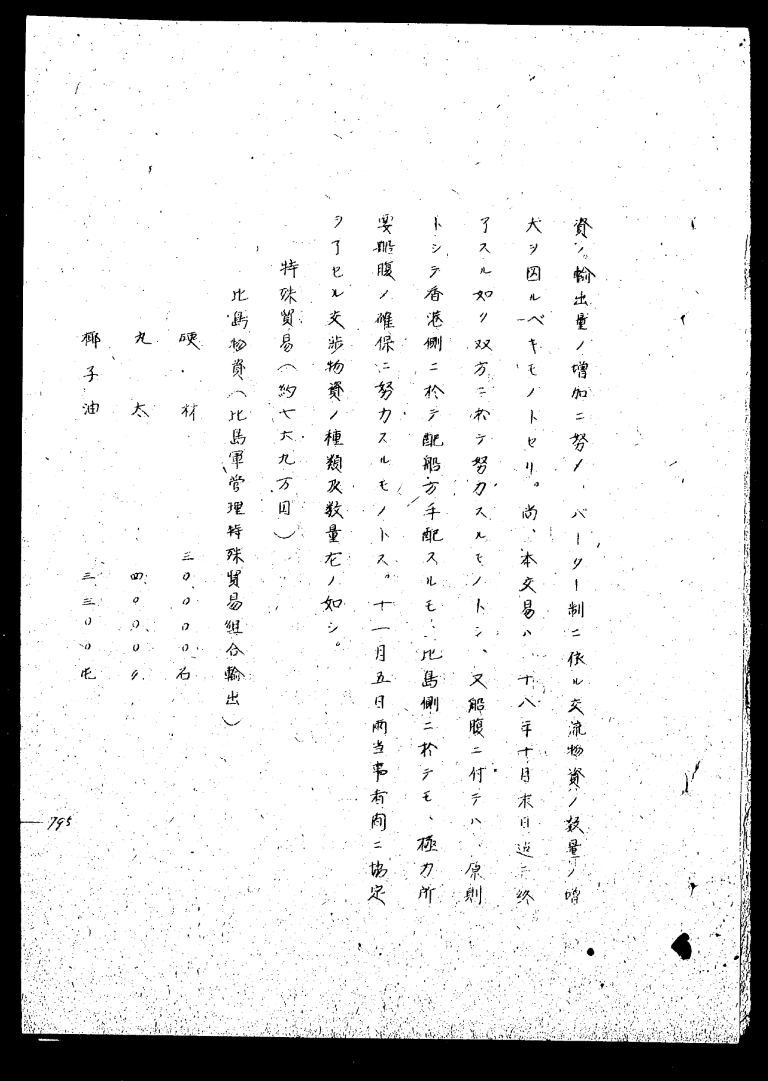 資ノ輸出量ノ増加ニ努メ、バーター制ニ依ル交流物資ノ数量ノ増
大ヲ図ルベキモノトセリ。尚、本交易ハ、十八年十月末日迄ニ終
了スル如ク双方ニ於テ努力スルモノトシ、又船腹ニ付テハ、原則
トシテ香港側ニ於テ配船方手配スルモ、比島側ニ於テモ、極力所
要船腹ノ確保ニ努力スルモノトス。十一月五日両当事者間ニ協定
ヲ了セル交渉物資ノ種類及数量左ノ如シ。
特殊貿易(約七六九万円)
比島物資(比島軍管理特殊貿易組合輸出)
硬材 三〇〇〇〇石
丸太 四〇〇〇〃
椰子油 三三〇〇屯
795